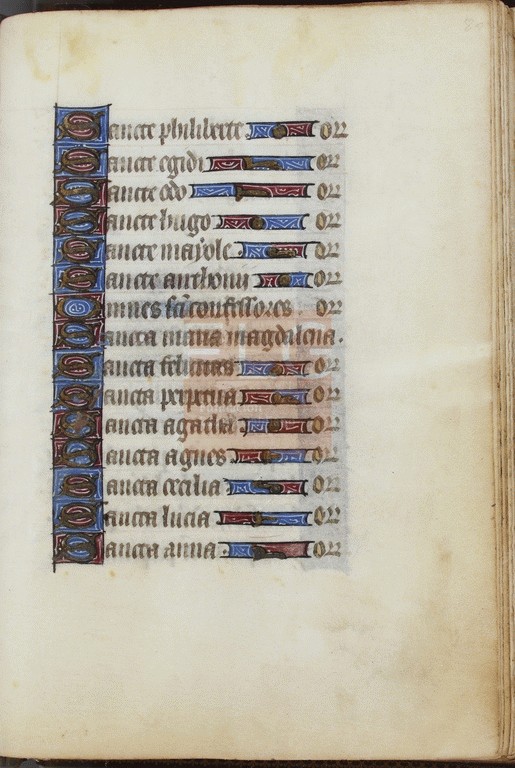 Sancte philiberte or
Sancte egidi or
Sancte odo or
Sancte hugo or
Sancte mayole or
Sancte anthoni or
Omnes sci confessores or
Sancta maria magdalena.
Sancta felicitas or
Sancta perpetua or
Sancta agatha or
Sancta agnes or
Sancta cecilia or
Sancta lucia or
Sancta anna or